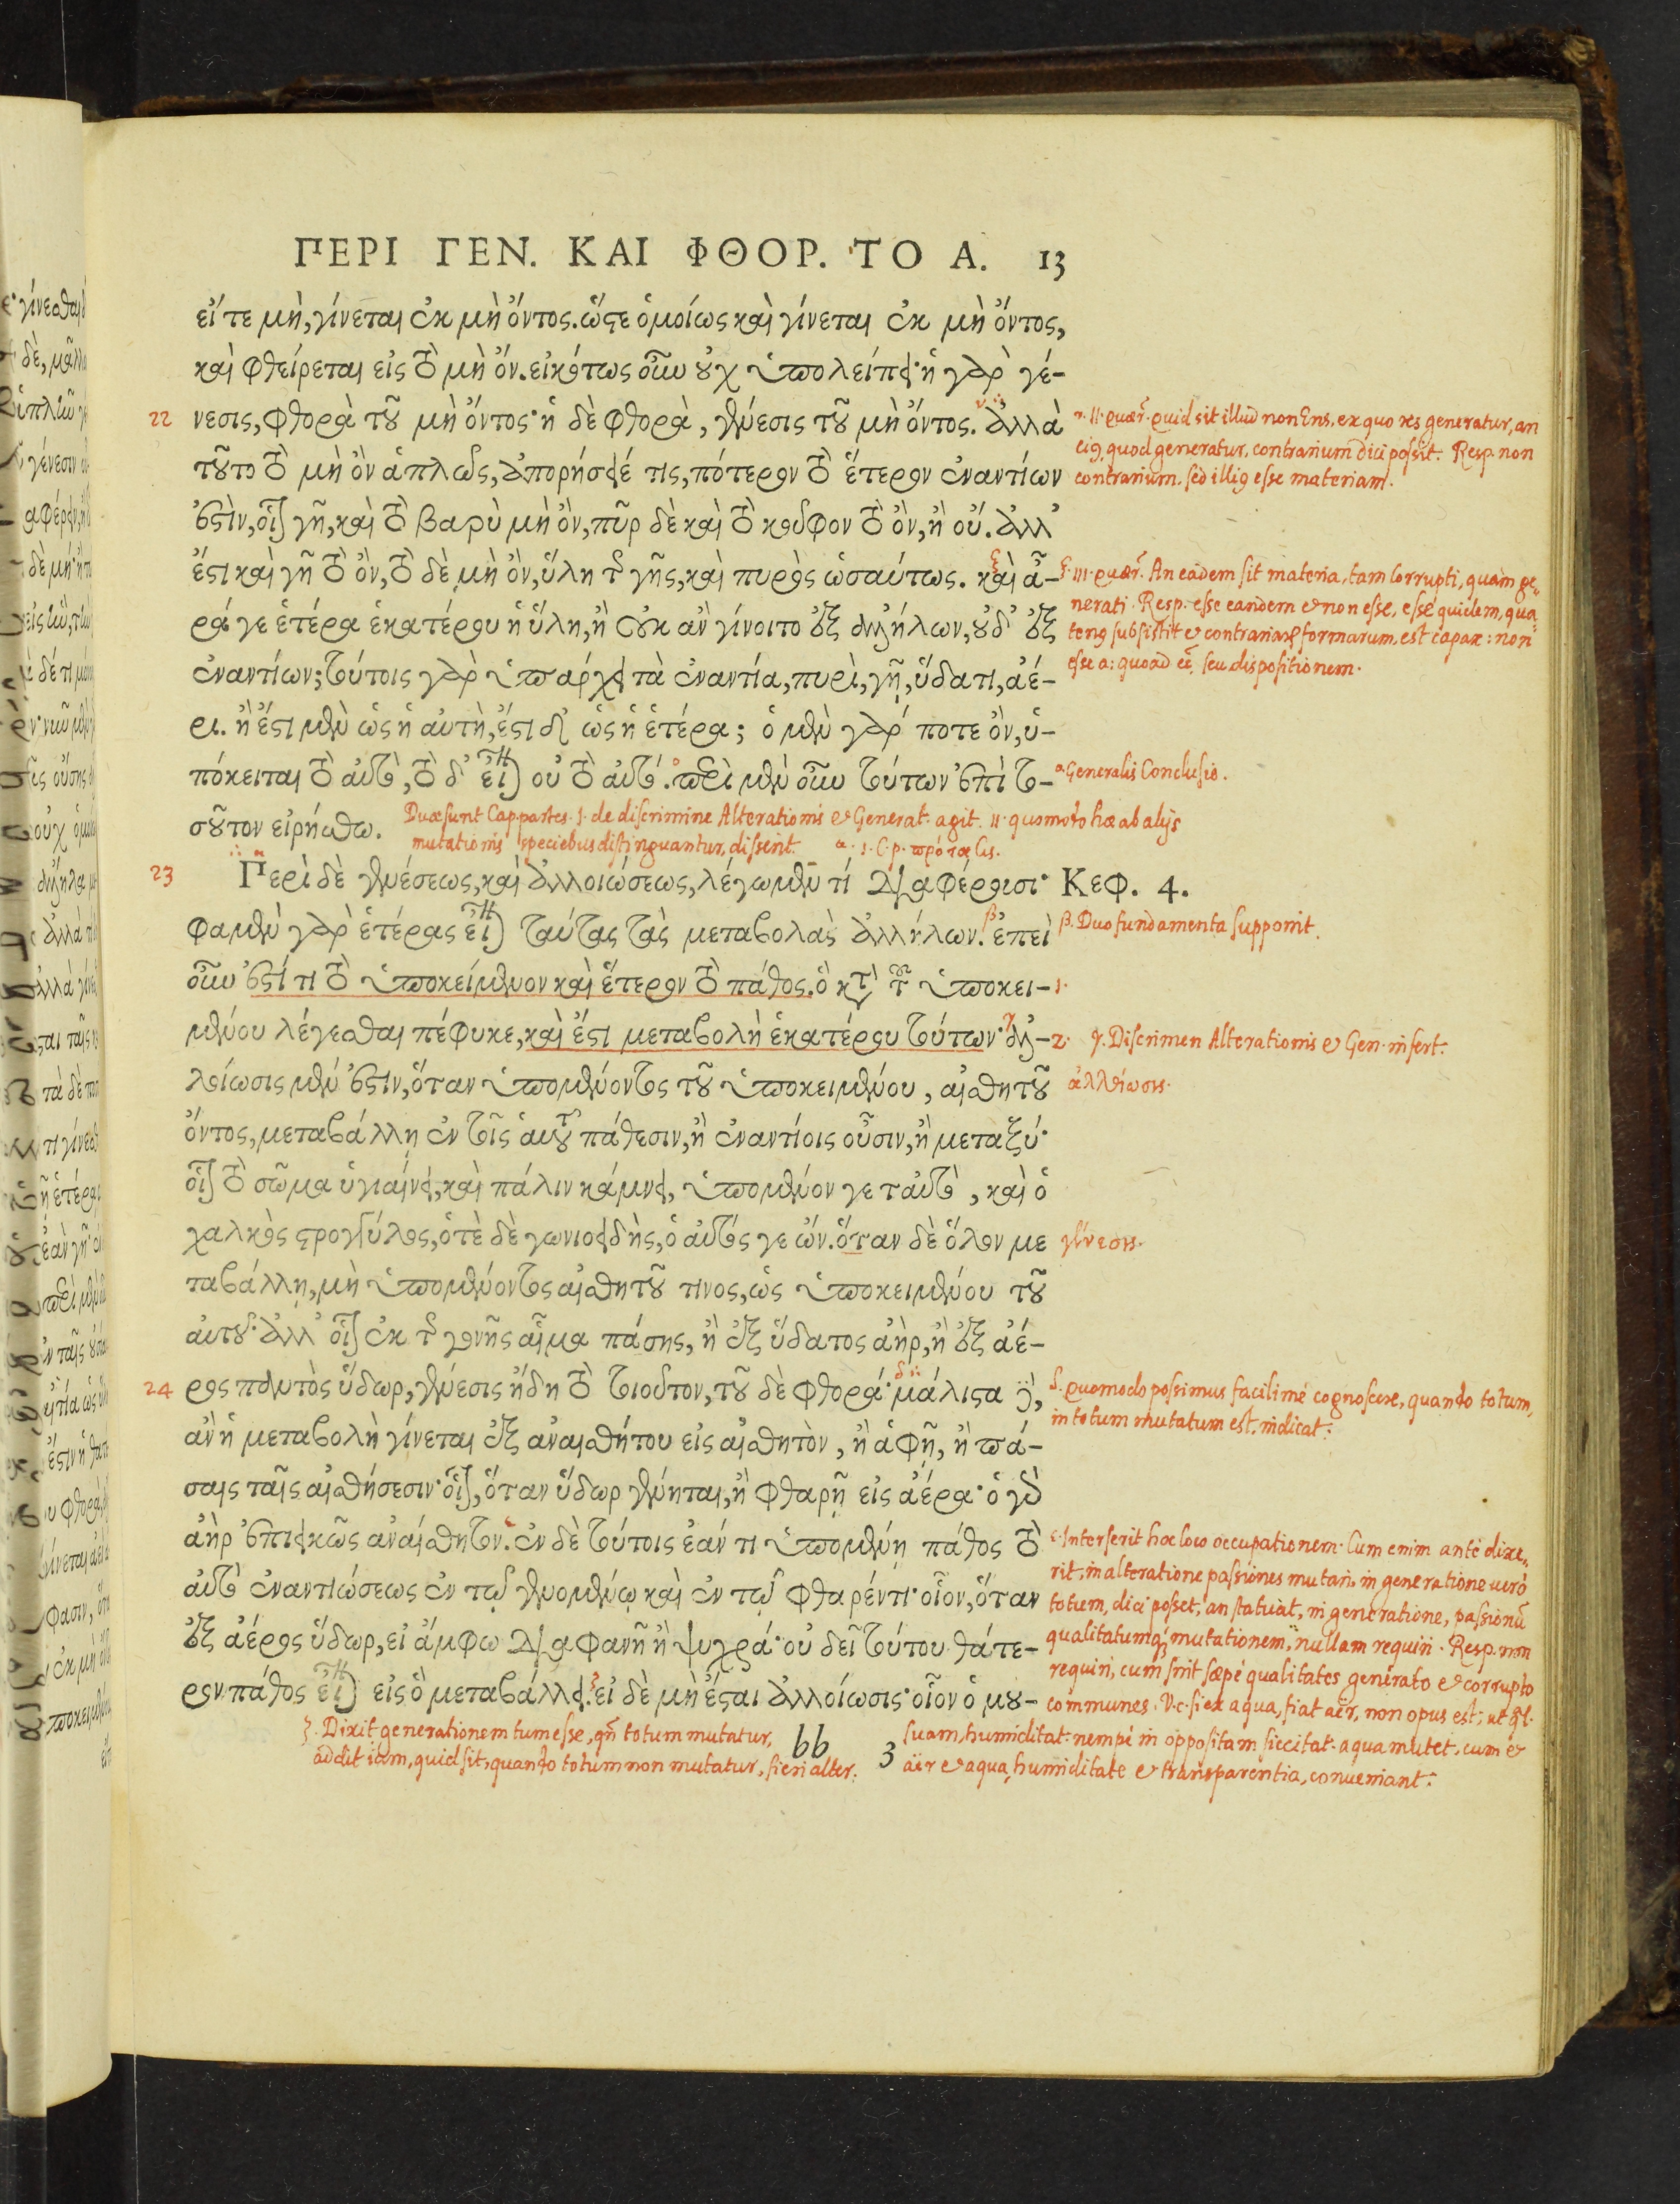 ΠΕΡΙ ΓΕΝ. ΚΑΙ ΦΘΟΡ. ΤΟ Α. 13
εἴτε μὴ, γίνεται ἐκ μὴ ὄντος. ὥστε ὁμοίως καὶ γίνεται ἐκ μὴ ὄντος,
καὶ φθείρεται εἰς τὸ μὴ ὄν. εἰκότως οὖν οὐχ ὑπολείπει· ἡ γὰρ γέ-
22 νεσις, φθορὰ τοῦ μὴ ὄντος· ἡ δὲ φθορὰ, γένεσις τοῦ μὴ ὄντος. ἀλλὰ
τοῦτο τὸ μὴ ὂν ἁπλῶς, ἀπορήσειέ τις, πότερον τὸ ἕτερον ἐναντίων
ἐστὶν, οἷον γῆ, καὶ τὸ βαρὺ μὴ ὂν, πῦρ δὲ καὶ τὸ κοῦφον τὸ ὂν, ἢ οὔ. ἀλλ'
ἔστι καὶ γῆ τὸ ὂν, τὸ δὲ μὴ ὂν, ὕλη τῆς γῆς, καὶ πυρὸς ὡσαύτως. καὶ ἆ-
ρά γε ἑτέρα ἑκατέρου ἡ ὕλη, ἢ οὐκ ἂν γίνοιτο ἐξ ἀλλήλων, οὐδ' ἐξ
ἐναντίων; τούτοις γὰρ ὑπάρχει τὰ ἐναντία, πυρὶ, γῇ, ὕδατι, ἀέ-
ρι. ἢ ἔστι μὲν ὡς ἡ αὐτὴ, ἔστι δ' ὡς ἡ ἑτέρα; ὁ μὲν γάρ ποτε ὂν, ὑ-
πόκειται τὸ αὐτὸ, τὸ δ' εἶναι οὐ τὸ αὐτό. περὶ μὲν οὖν τούτων ἐπὶ το-
σοῦτον εἰρήσθω.
23 Περὶ δὲ γενέσεως, καὶ ἀλλοιώσεως, λέγωμεν τί διαφέρουσι· Κεφ. 4.
φαμὲν γὰρ ἑτέρας εἶναι ταύτας τὰς μεταβολὰς ἀλλήλων. ἐπεὶ
οὖν ἐστί τι τὸ ὑποκείμενον καὶ ἕτερον τὸ πάθος. ὃ κατὰ τοῦ ὑποκει-
μένου λέγεσθαι πέφυκε, καὶ ἔστι μεταβολὴ ἑκατέρου τούτων· ἀλ-
λοίωσις μέν ἐστιν, ὅταν ὑπομένοντος τοῦ ὑποκειμένου, αἰσθητοῦ
ὄντος, μεταβάλλῃ ἐν τοῖς αὑτοῦ πάθεσιν, ἢ ἐναντίοις οὖσιν, ἢ μεταξύ·
οἷον τὸ σῶμα ὑγιαίνει, καὶ πάλιν κάμνει, ὑπομένον γε ταὐτὸ, καὶ ὁ
χαλκὸς στρογγύλος, ὁτὲ δὲ γωνιοειδὴς, ὁ αὐτός γε ὤν. ὅταν δὲ ὅλον με
ταβάλλῃ, μὴ ὑπομένοντος αἰσθητοῦ τινος, ὡς ὑποκειμένου τοῦ
αὐτοῦ· ἀλλ' οἷον ἐκ τῆς γονῆς αἷμα πάσης, ἢ ἐξ ὕδατος ἀὴρ, ἢ ἐξ ἀέ-
24 ρος παντὸς ὕδωρ, γένεσις ἤδη τὸ τοιοῦτον, τοῦ δὲ φθορά· μάλιστα δὲ,
ἂν ἡ μεταβολὴ γίνεται ἐξ ἀναισθήτου εἰς αἰσθητὸν, ἢ ἁφῇ, ἢ πά-
σαις ταῖς αἰσθήσεσιν· οἷον, ὅταν ὕδωρ γένηται, ἢ φθαρῇ εἰς ἀέρα· ὁ γὰρ
ἀὴρ ἐπιεικῶς ἀναίσθητον. ἐν δὲ τούτοις ἐάν τι ὑπομένῃ πάθος τὸ
αὐτὸ ἐναντιώσεως ἐν τῷ γενομένῳ καὶ ἐν τῷ φθαρέντι· οἷον, ὅταν
ἐξ ἀέρος ὕδωρ, εἰ ἄμφω διαφανῆ ἢ ψυχρά· οὐ δεῖ τούτου θάτε-
ρον πάθος εἶναι εἰς ὃ μεταβάλλει. εἰ δὲ μὴ ἔσται ἀλλοίωσις· οἷον ὁ μου-
bb 3
ν. II. quær. quid sit illud non Ens, ex quo res generatur, an
eius, quod generatur, contrarium dici possit. Resp. non
contrarium. sed illius esse materiam.
ξ. III. quær. An eadem sit materia, tam corrupti, quàm ge-
nerati. Resp. esse eandem et non esse, esse quidem, qua-
tenus subsistit et contrariarum formarum, est capax: non
esse a: quoad eẽ, seu dispositionem.
ο Generalis Conclusio.
Duæ sunt Cap. partes. 1. de discrimine Alterationis et Generat. agit. II. quomodo hæ ab alijs
mutationis speciebus distinguantur, disserit. α. 1. C. p. πρότασις.
β. Duo fundamenta supponit.
1.
2. γ. Discrimen Alterationis et Gen. infert.
ἀλλοίωσις.
γένεσις.
δ. Quomodo possimus facilimè cognoscere, quando totum,
in totum mutatum est, indicat.
ε. Interserit hoc loco occupationem. Cum enim antè dixe-
rit, in alteratione passiones mutari, in generatione uerò
totum, dici posset, an statuat, in generatione, passionũ
qualitatumq; mutationem, nullam requiri. Resp. non
requiri, cum sint sæpè qualitates generato et corrupto
communes. V.c. si ex aqua, fiat aër, non opus est, ut ql.
suam, humiditat. nempè in oppositam siccitat. aqua mutet, cum et
aër et aqua, humiditate et transparentia, conueniant.
ζ. Dixit generationem tum esse, qñ totum mutatur,
addit iam, quid sit, quando totum non mutatur, fieri alter.